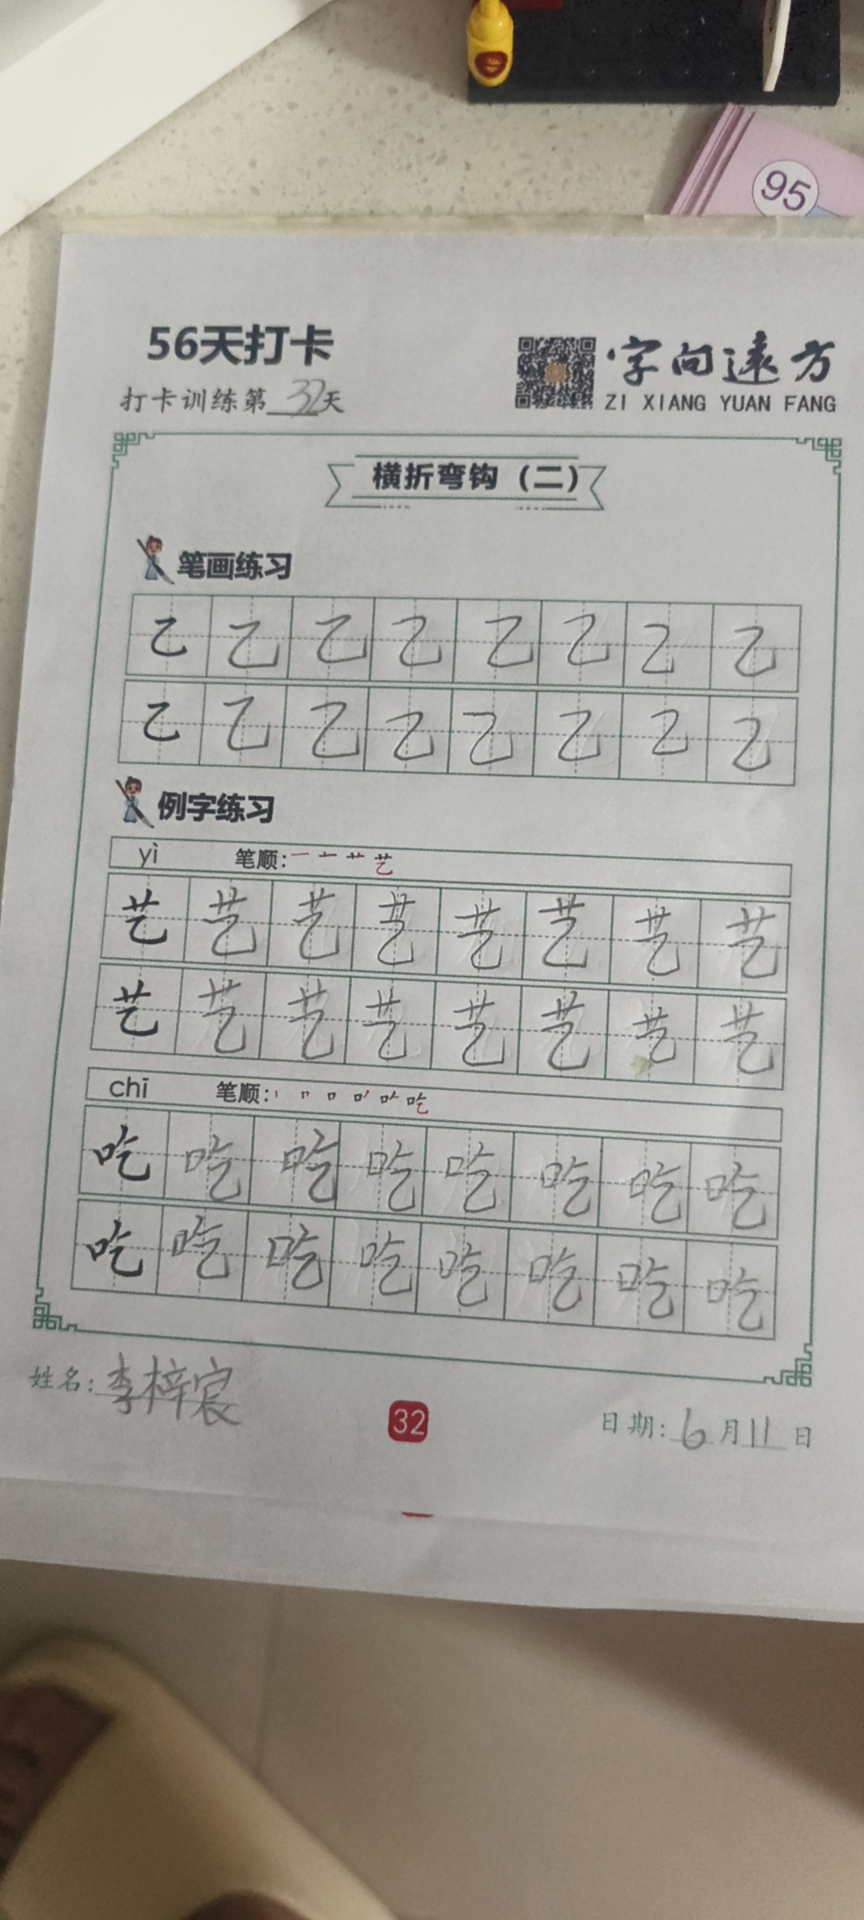 95
56天打卡
字向遠方
打卡训练第32天
ZI XIANG YUAN FANG
横折弯钩（二）
笔画练习
乙乙乙乙乙乙乙乙
乙乙乙乙乙乙乙乙
例字练习
yì 笔顺: 艺
艺艺艺艺艺艺艺艺
艺艺艺艺艺艺艺艺
chī 笔顺: 吃
吃吃吃吃吃吃吃吃
吃吃吃吃吃吃吃吃
姓名: 李梓宸
32
日期: 6月11日